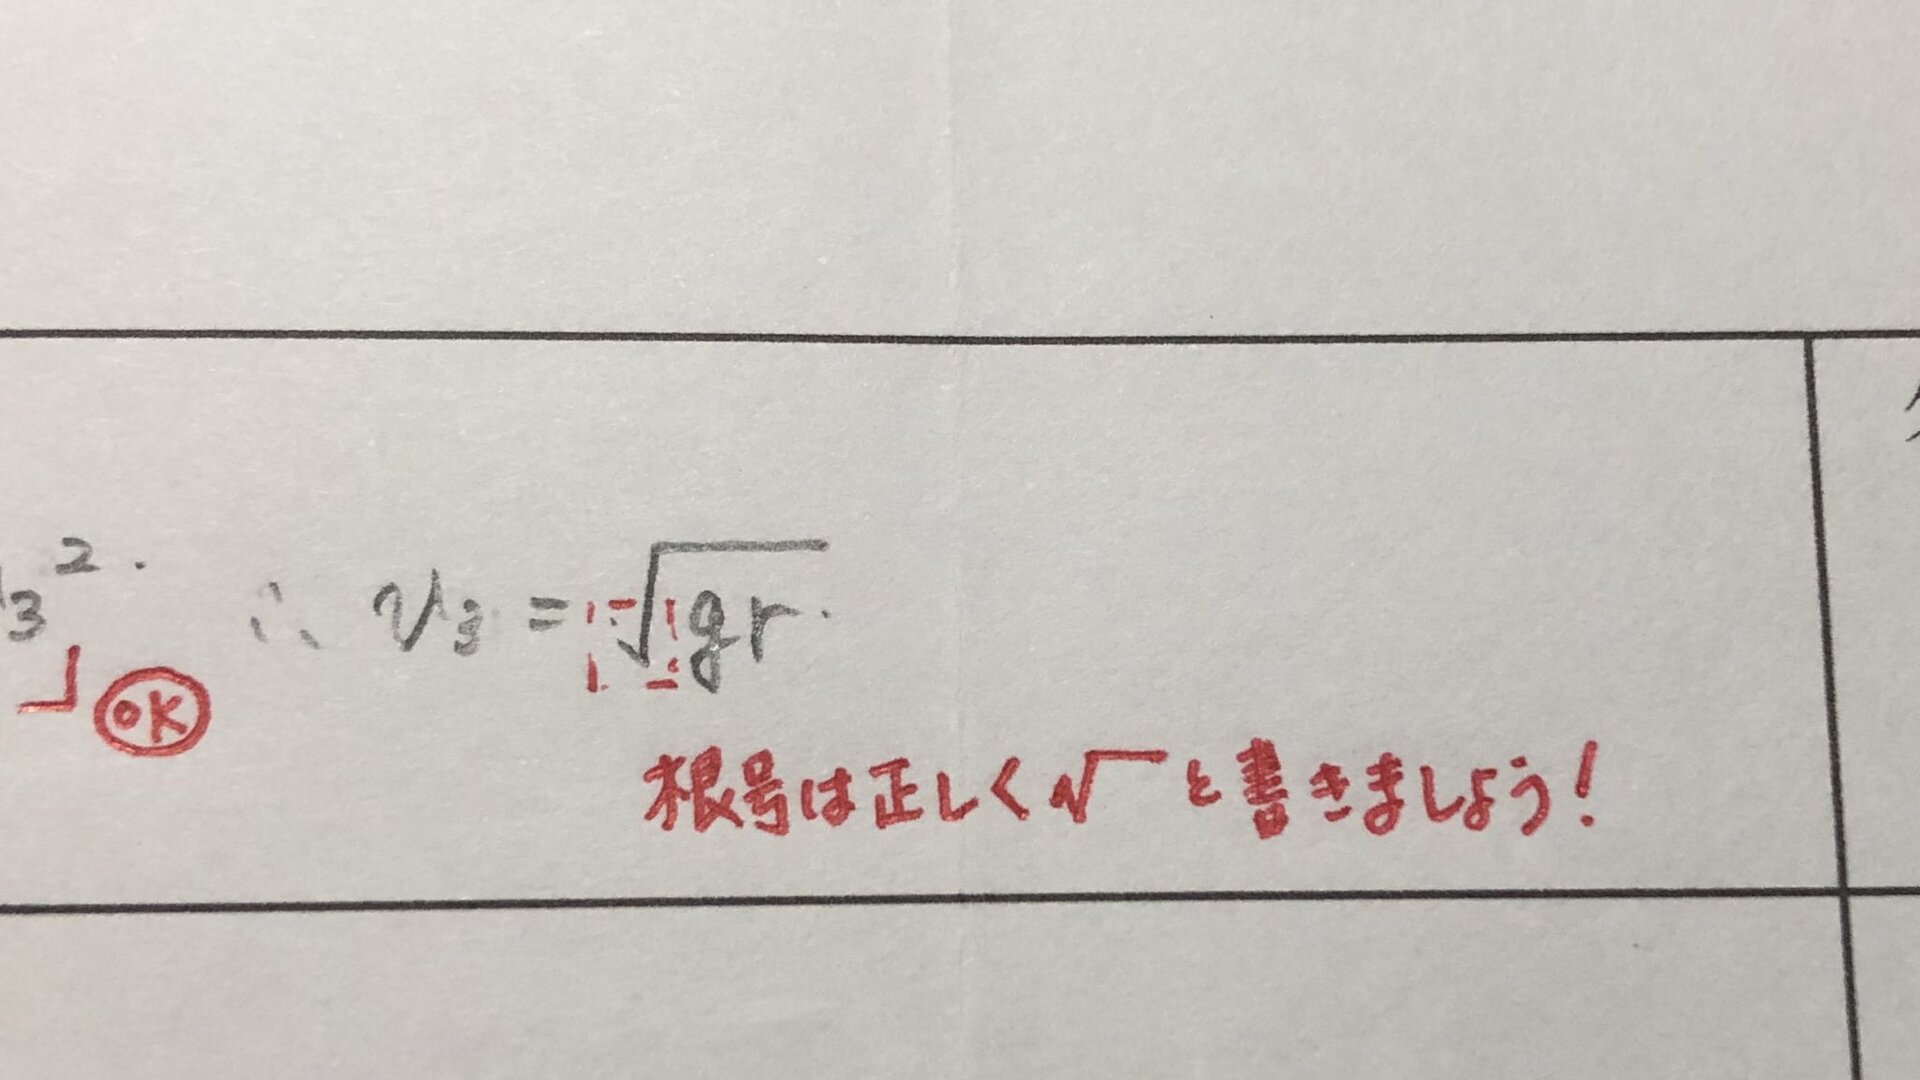 3². ∴ v₃ = √gr.
OK
根号は正しく√と書きましょう!